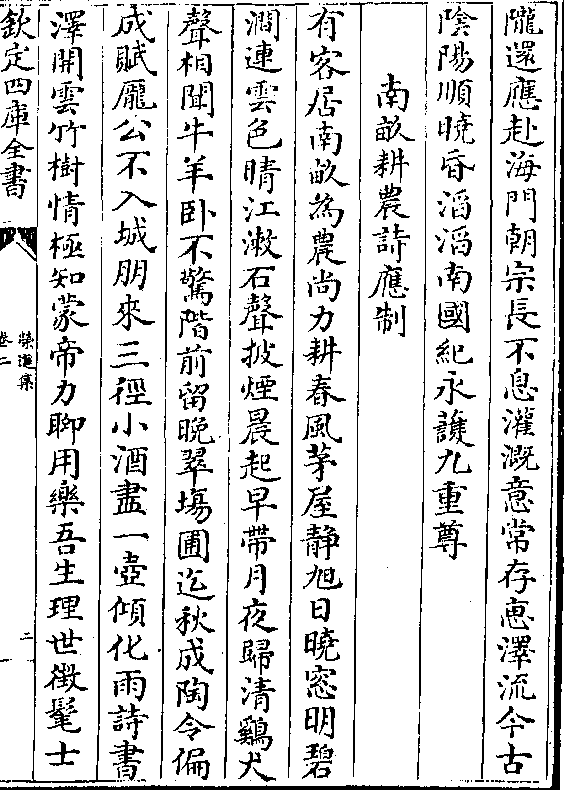 隴還應赴海門朝宗長不息灌溉意常存恵澤流今古
陰陽順曉昏滔滔南國紀永護九重尊
南畝耕農詩應制
有客居南畝為農尚力耕春風茅屋靜旭日曉窓明碧
澗連雲色晴江漱石聲披煙晨起早帶月夜歸清鷄犬
聲相聞牛羊卧不驚階前留晚翠塲圃迄秋成陶令偏
成賦龐公不入城朋來三徑小酒盡一壺傾化雨詩書
澤開雲竹樹情極知蒙帝力聊用樂吾生理世徵髦士
欽定四庫全書
榮進集
卷二
二